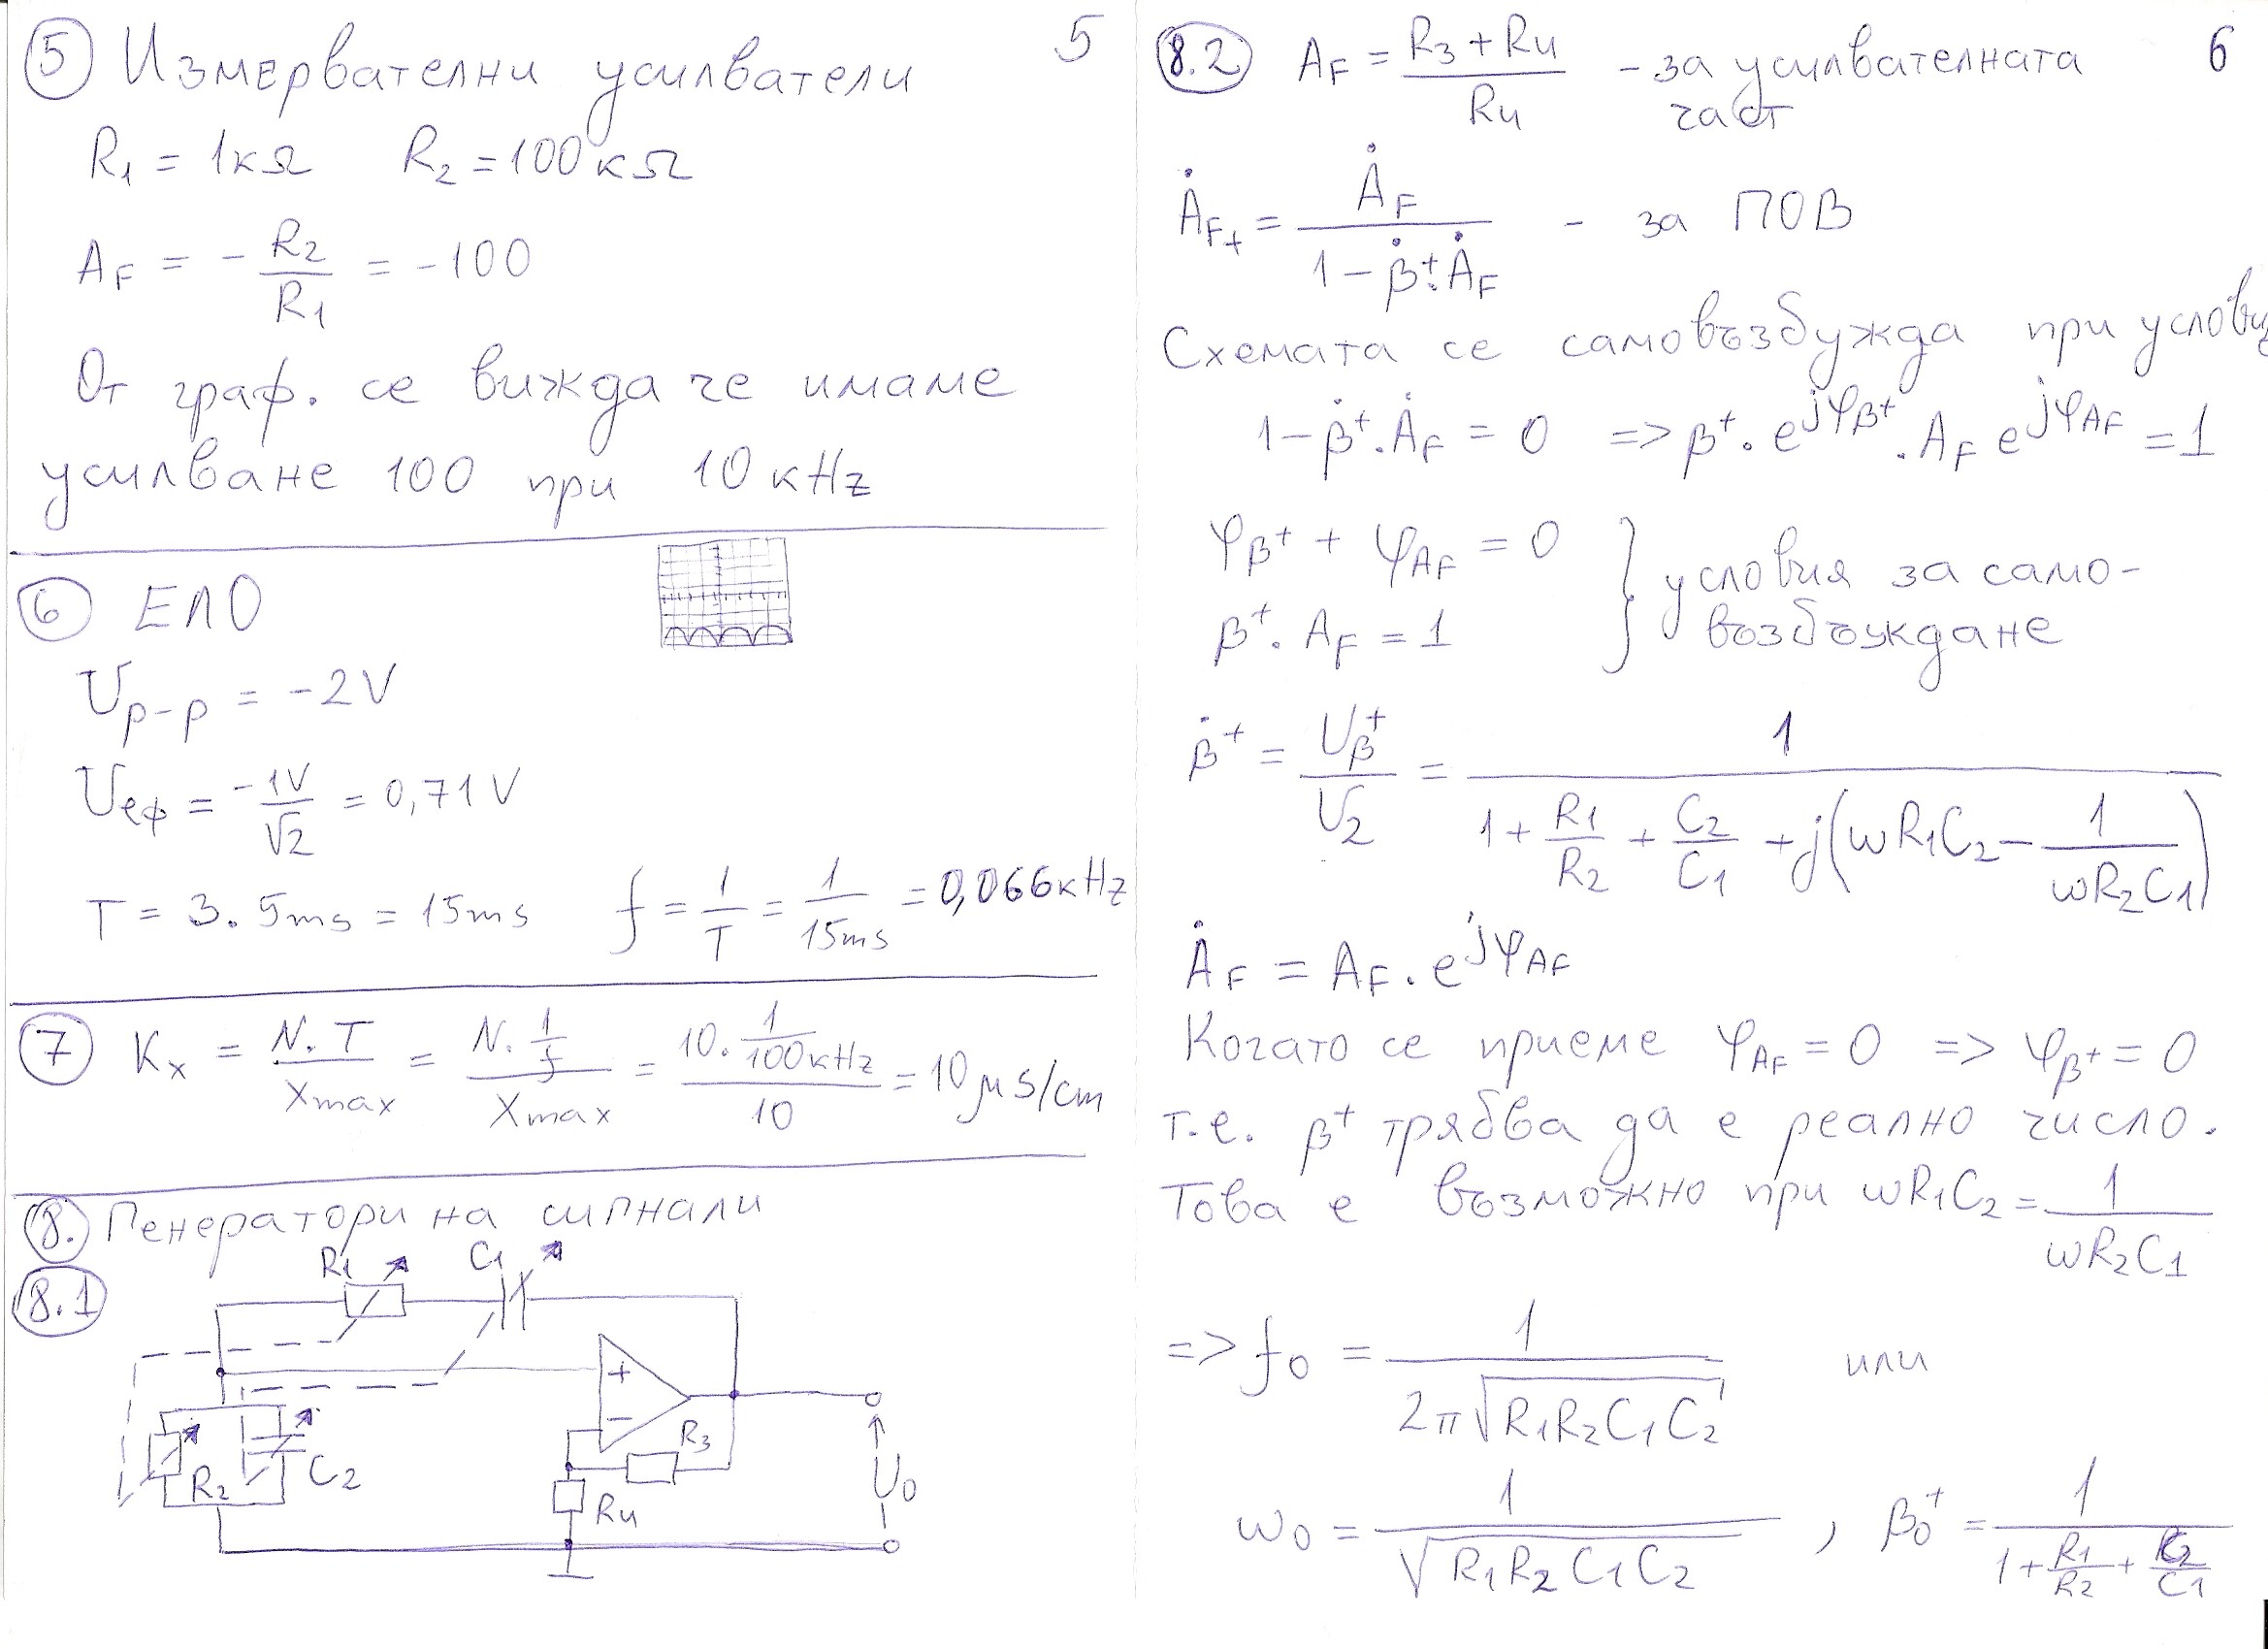 5
⑤ Измервателни усилватели
R₁ = 1кΩ R₂ = 100кΩ
A_F = - R₂/R₁ = -100
От граф. се вижда че имаме
усилване 100 при 10 кHz
⑥ ЕЛО
U_p-p = -2V
U_еф = -1V/√2 = 0,71V
T = 3. 5ms = 15ms f = 1/T = 1/15ms = 0,066кHz
⑦ K_x = N.T/X_max = N.1/f / X_max = 10.1/100кHz / 10 = 10μs/cm
⑧. Генератори на сигнали
8.1
R₁ C₁
+
-
R₃
R₂ C₂
R₄
U₀
6
8.2 A_F = R₃+R₄/R₄ - за усилвателната
част
Ȧ_F+ = Ȧ_F / 1-β̇⁺.Ȧ_F - за ПОВ
Схемата се самовъзбужда при
1-β̇⁺.Ȧ_F = 0 => β⁺.e^jφ_β⁺ . A_F e^jφ_AF = 1
φ_β⁺ + φ_AF = 0
β⁺. A_F = 1
} условия за само-
възбуждане
β̇⁺ = U_β⁺/U₂ = 1 / 1 + R₁/R₂ + C₂/C₁ + j(ωR₁C₂ - 1/ωR₂C₁)
Ȧ_F = A_F . e^jφ_AF
Когато се приеме φ_AF = 0 => φ_β⁺ = 0
т.е. β⁺ трябва да е реално число.
Това е възможно при ωR₁C₂ = 1/ωR₂C₁
=> f₀ = 1 / 2π√R₁R₂C₁C₂ или
ω₀ = 1 / √R₁R₂C₁C₂ , β₀⁺ = 1 / 1 + R₁/R₂ + C₂/C₁